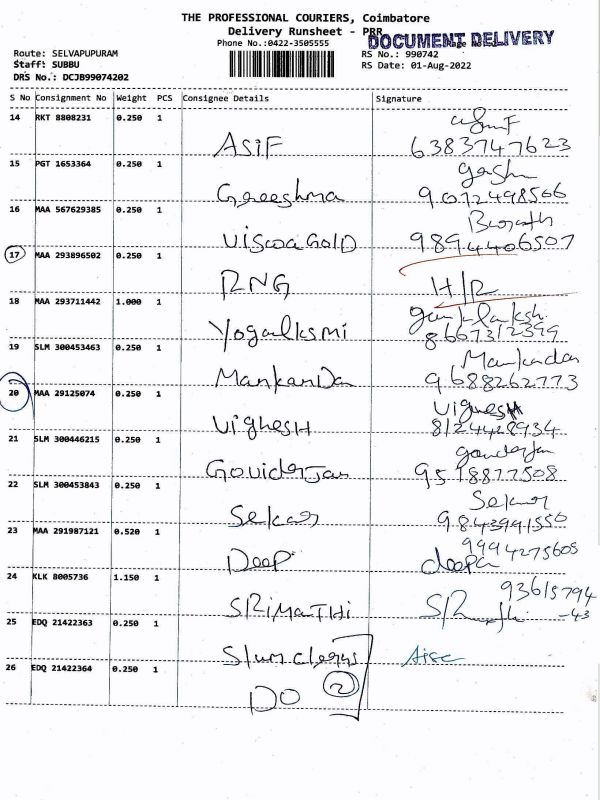 THE PROFESSIONAL COURIERS, Coimbatore
Delivery Runsheet - PRR
DOCUMENT DELIVERY
Phone No.:0422-3505555
Route: SELVAPUPURAM
RS No.: 990742
Staff: SUBBU
RS Date: 01-Aug-2022
DRS No.: DCJB99074202
S No Consignment No Weight PCS Consignee Details Signature
14 RKT 8808231 0.250 1
ASIF 6383747623
15 PGT 1653364 0.250 1
Greeshma 9072498566
16 MAA 567629385 0.250 1
ViswaGOLD 9894406507
17 MAA 293896502 0.250 1
RNG H/R
18 MAA 293711442 1.000 1
Yogalksmi 8667312599
19 SLM 300453463 0.250 1
Mankanda
ManKanDa 9688262773
20 MAA 29125074 0.250 1
Vignesh
VigHesH 8124428934
21 SLM 300446215 0.250 1
GouiderJan 9518877508
22 SLM 300453843 0.250 1
Sekar
Sekar 9843991550
23 MAA 291987121 0.520 1
9994275605
Deep deepa
24 KLK 8005736 1.150 1
93615794
SRiMaTHi -43
25 EDQ 21422363 0.250 1
26 EDQ 21422364 0.250 1
DO 2